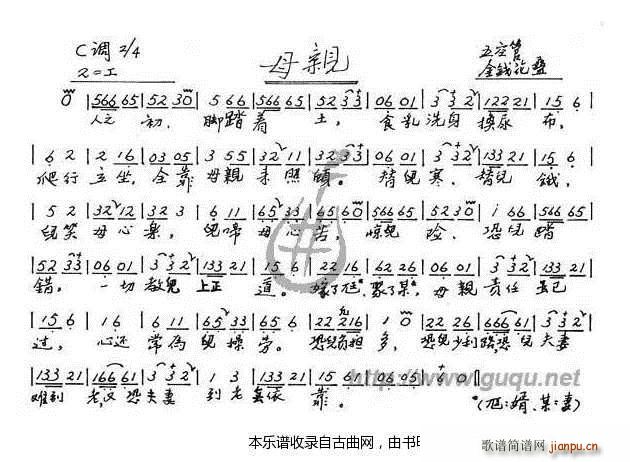 C调 2/4
母親
五空管
2=工
金钱花叠
0 566 65 52 30 5 66 566 65 52 33 06 01 3 32 122 21 15 6
人之初, 脚踏着土, 食乳洗身换尿布,
6 2 2 16 03 05 3 55 32 11 32 33 06 01 3 32 133 21 15 6
爬行立坐, 全靠母親来照顧。 替兒寒, 替兒餓,
5 2 32 12 32 3 6 11 65 33 65 60 566 65 52 30 i 66 566 65
兒笑母心樂, 兒啼母心苦, 惊兒险, 恐兒踏
52 33 06 01 3 32 133 21 15 6 22 16 62 26 06 01 3 32 133 21
錯。 一切教兒上正道。 嫁了尪, 娶了某, 母親责任虽已
15 6 16 6 11 65 33 65 6 22 216 1 0 22 26 666 61 3 32
过, 心还常為兒操劳。 恐兒负担多, 恐兒夫妻
133 21 166 61 3 32 1 3 133 21 15 61 06 05 6
难到老, 又恐夫妻到老無依靠。
http://www.guqu.net
(尪:婿, 某:妻)
本乐谱收录自古曲网，由书
歌谱简谱网
jianpu.cn